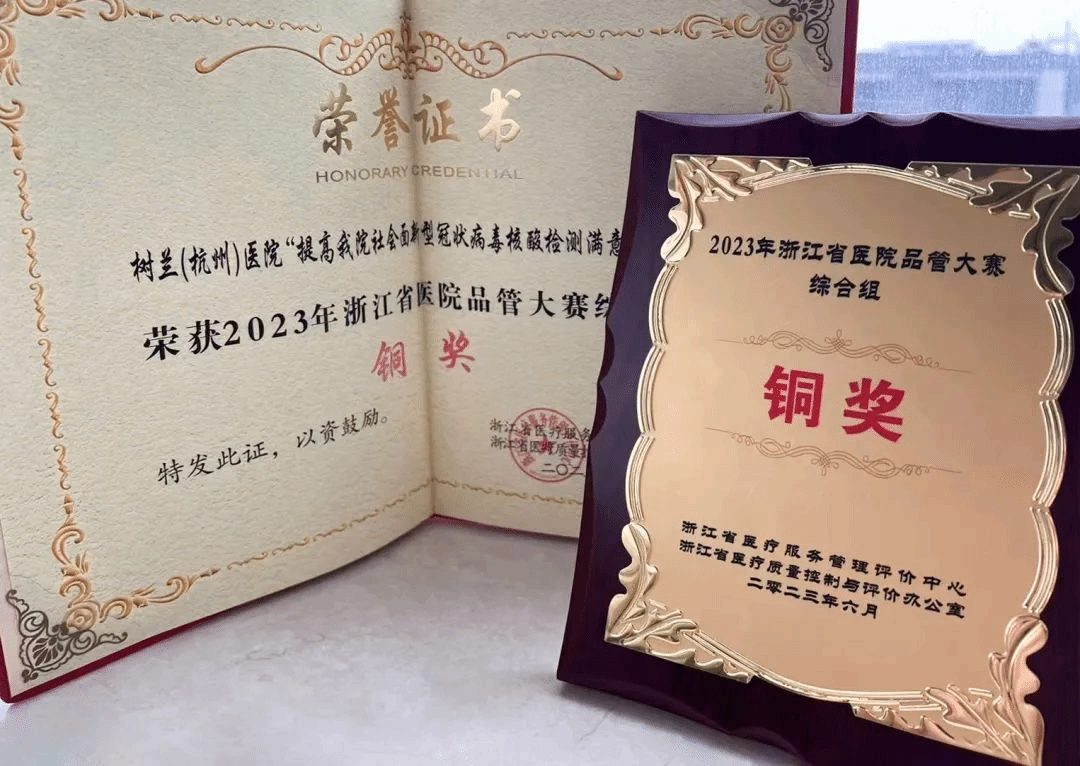 荣誉证书
HONORARY CREDENTIAL
树兰(杭州)医院“提高我院社会面新型冠状病毒核酸检测满意
荣获2023年浙江省医院品管大赛综
铜奖
特发此证，以资鼓励。
浙江省医疗服务
浙江省医疗质量
二〇二
2023年浙江省医院品管大赛
综合组
铜奖
浙江省医疗服务管理评价中心
浙江省医疗质量控制与评价办公室
二零二三年六月